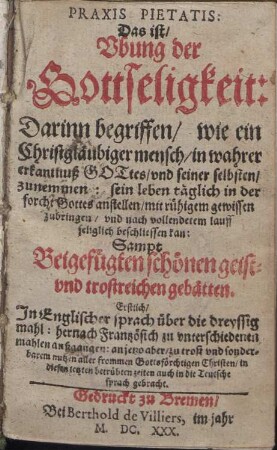 PRAXIS PIETATIS:
Das ist/
Vbung der
Gottseligkeit:
Darinn begriffen/ wie ein
Christglaubiger mensch/ in wahrer
erkantnuß GOTtes/ vnd seiner selbsten/
zunemmen: sein leben täglich in der
forcht Gottes anstellen/ mit rühigem gewissen
zubringen/ vnd nach vollendetem lauff
seliglich beschliessen kan:
Sampt
Beigefügten schönen geist-
vnd trostreichen gebätten.
Erstlich/
In Englischer sprach über die dreyssig
mahl: hernach Französisch zu vnterschiedenen
mahlen außgangen: anjetzo aber/ zu trost vnd sonder-
barem nutzen aller frommen Gottsförchtigen Christen/ in
diesen letzten betrübten zeiten auch in die Teutsche
sprach gebracht.
Gedruckt zu Bremen/
Bei Berthold de Villiers, im jahr
M. DC. XXX.